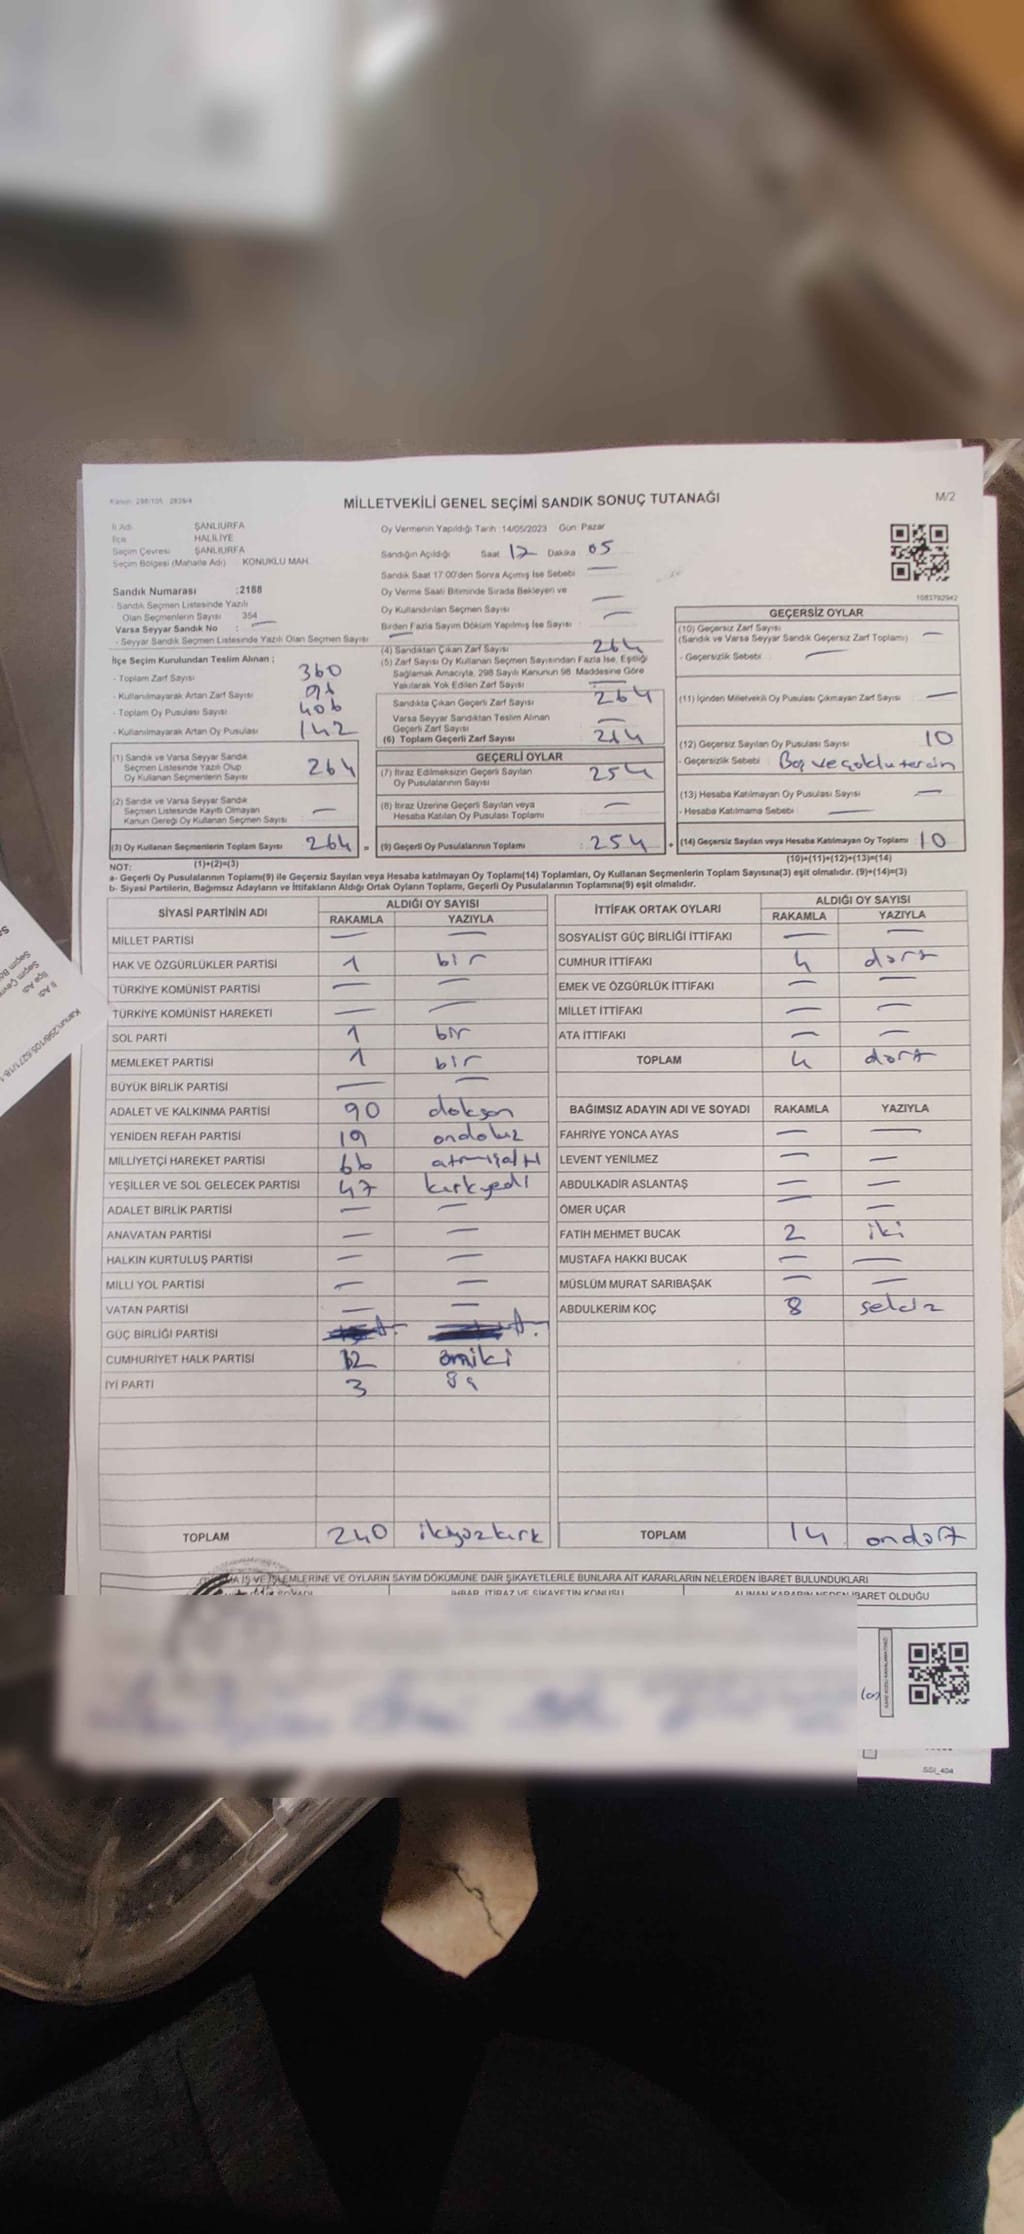 Kanun: 298/105 2839/4
MİLLETVEKİLİ GENEL SEÇİMİ SANDIK SONUÇ TUTANAĞI
M/2
İl Adı : ŞANLIURFA
İlçe : HALİLİYE
Seçim Çevresi : ŞANLIURFA
Seçim Bölgesi (Mahalle Adı) KONUKLU MAH.
Sandık Numarası :2188
- Sandık Seçmen Listesinde Yazılı
Olan Seçmenlerin Sayısı 354
Varsa Seyyar Sandık No : —
- Seyyar Sandık Seçmen Listesinde Yazılı Olan Seçmen Sayısı : —
İlçe Seçim Kurulundan Teslim Alınan ;
- Toplam Zarf Sayısı : 360
- Kullanılmayarak Artan Zarf Sayısı : 96
- Toplam Oy Pusulası Sayısı : 406
- Kullanılmayarak Artan Oy Pusulası : 142
(1) Sandık ve Varsa Seyyar Sandık
Seçmen Listesinde Yazılı Olup
Oy Kullanan Seçmenlerin Sayısı : 264
(2) Sandık ve Varsa Seyyar Sandık
Seçmen Listesinde Kayıtlı Olmayan
Kanun Gereği Oy Kullanan Seçmen Sayısı : —
(3) Oy Kullanan Seçmenlerin Toplam Sayısı : 264 =
(1)+(2)=(3)
Oy Vermenin Yapıldığı Tarih :14/05/2023 Gün: Pazar
Sandığın Açıldığı Saat 17 Dakika 05
Sandık Saat 17:00'den Sonra Açılmış İse Sebebi : —
Oy Verme Saati Bitiminde Sırada Bekleyen ve
Oy Kullandırılan Seçmen Sayısı : —
Birden Fazla Sayım Döküm Yapılmış İse Sayısı : —
(4) Sandıktan Çıkan Zarf Sayısı : 264
(5) Zarf Sayısı Oy Kullanan Seçmen Sayısından Fazla İse, Eşitliği
Sağlamak Amacıyla, 298 Sayılı Kanunun 98. Maddesine Göre
Yakılarak Yok Edilen Zarf Sayısı : —
Sandıkta Çıkan Geçerli Zarf Sayısı : 264
Varsa Seyyar Sandıktan Teslim Alınan
Geçerli Zarf Sayısı : —
(6) Toplam Geçerli Zarf Sayısı : 264
GEÇERLİ OYLAR
(7) İtiraz Edilmeksizin Geçerli Sayılan
Oy Pusulalarının Sayısı : 254
(8) İtiraz Üzerine Geçerli Sayılan veya
Hesaba Katılan Oy Pusulası Toplamı : —
(9) Geçerli Oy Pusulalarının Toplamı : 254 +
1083792942
GEÇERSİZ OYLAR
(10) Geçersiz Zarf Sayısı :
(Sandık ve Varsa Seyyar Sandık Geçersiz Zarf Toplamı) —
- Geçersizlik Sebebi : —
(11) İçinden Milletvekili Oy Pusulası Çıkmayan Zarf Sayısı : —
(12) Geçersiz Sayılan Oy Pusulası Sayısı : 10
- Geçersizlik Sebebi : Boş ve çoklu tercih
(13) Hesaba Katılmayan Oy Pusulası Sayısı : —
- Hesaba Katılmama Sebebi : —
(14) Geçersiz Sayılan veya Hesaba Katılmayan Oy Toplamı : 10
(10)+(11)+(12)+(13)=(14)
NOT:
a- Geçerli Oy Pusulasının Toplamı(9) ile Geçersiz Sayılan veya Hesaba katılmayan Oy Toplamı(14) Toplamları, Oy Kullanan Seçmenlerin Toplam Sayısına(3) eşit olmalıdır. (9)+(14)=(3)
b- Siyasi Partilerin, Bağımsız Adayların ve İttifakların Aldığı Ortak Oyların Toplamı, Geçerli Oy Pusulalarının Toplamına(9) eşit olmalıdır.
SİYASİ PARTİNİN ADI ALDIĞI OY SAYISI
RAKAMLA YAZIYLA
MİLLET PARTİSİ — —
HAK VE ÖZGÜRLÜKLER PARTİSİ 1 bir
TÜRKİYE KOMÜNİST PARTİSİ — —
TÜRKİYE KOMÜNİST HAREKETİ — —
SOL PARTİ 1 bir
MEMLEKET PARTİSİ 1 bir
BÜYÜK BİRLİK PARTİSİ — —
ADALET VE KALKINMA PARTİSİ 90 doksan
YENİDEN REFAH PARTİSİ 19 ondokuz
MİLLİYETÇİ HAREKET PARTİSİ 66 atmışaltı
YEŞİLLER VE SOL GELECEK PARTİSİ 47 kırkyedi
ADALET BİRLİK PARTİSİ — —
ANAVATAN PARTİSİ — —
HALKIN KURTULUŞ PARTİSİ — —
MİLLİ YOL PARTİSİ — —
VATAN PARTİSİ — —
GÜÇ BİRLİĞİ PARTİSİ
CUMHURİYET HALK PARTİSİ 12 oniki
İYİ PARTİ 3
TOPLAM 240 ikiyüzkırk
İTTİFAK ORTAK OYLARI ALDIĞI OY SAYISI
RAKAMLA YAZIYLA
SOSYALİST GÜÇ BİRLİĞİ İTTİFAKI — —
CUMHUR İTTİFAKI 4 dört
EMEK VE ÖZGÜRLÜK İTTİFAKI — —
MİLLET İTTİFAKI — —
ATA İTTİFAKI — —
TOPLAM 4 dört
BAĞIMSIZ ADAYIN ADI VE SOYADI RAKAMLA YAZIYLA
FAHRİYE YONCA AYAS — —
LEVENT YENİLMEZ — —
ABDULKADİR ASLANTAŞ — —
ÖMER UÇAR — —
FATİH MEHMET BUCAK 2 iki
MUSTAFA HAKKI BUCAK — —
MÜSLÜM MURAT SARIBAŞAK — —
ABDULKERİM KOÇ 8 sekiz
TOPLAM 14 ondört
İŞ VE İŞLEMLERİNE VE OYLARIN SAYIM DÖKÜMÜNE DAİR ŞİKAYETLERLE BUNLARA AİT KARARLARIN NELERDEN İBARET BULUNDUKLARI
İHBAR, İTİRAZ VE ŞİKAYETİN KONUSU ALINAN KARARIN NEDEN İBARET OLDUĞU
SSI_404